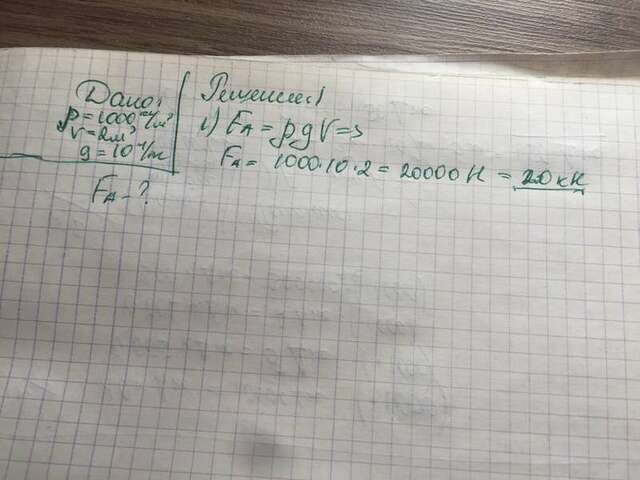 Дано:
ρ = 1000 кг/м³
V = 2 м³
g = 10 Н/кг
FА - ?
Решение:
1) FА = ρgV =>
FА = 1000·10·2 = 20000 Н = 20 кН